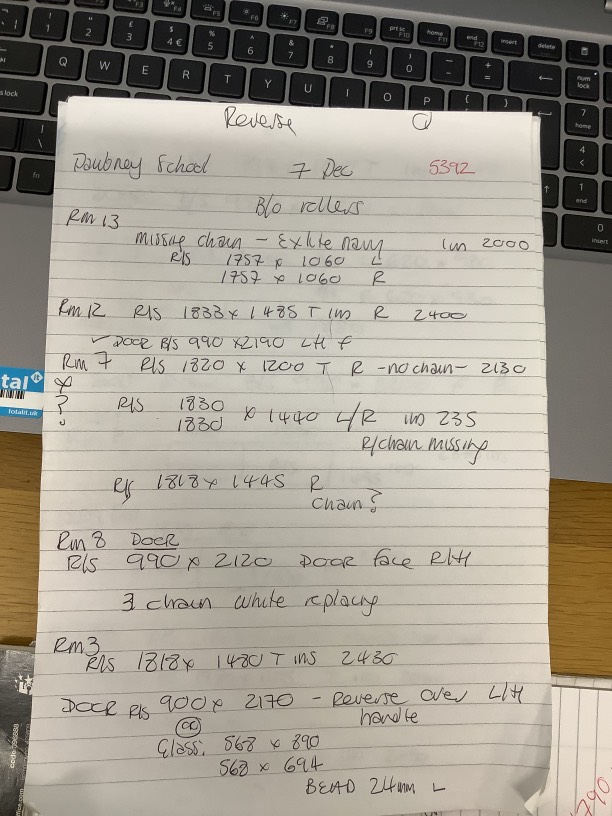 Reverse
Daubney School 7 Dec 5392
B/O rollers
Rm 13
missing chain - Exlite navy im 2000
R/S 1757 x 1060 L
1757 x 1060 R
Rm 12 R/S 1833 x 1485 T ins R 2400
✓ DOOR R/S 990 x 2190 LH f
Rm 7 R/S 1820 x 1200 T R - no chain - 2130
?
R/S 1830
1830 x 1440 L/R ins 235
R/chain missing
R/S 1818 x 1445 R
chain?
Rm 8 DOOR
R/S 990 x 2120 DOOR face R/H
3 chain white replacing
Rm 3
R/S 1818 x 1480 T ins 2430
DOOR R/S 900 x 2170 - Reverse over L/H
handle
Glass: 568 x 890
568 x 694
BEAD 24mm L
790
tal it
totalit.uk
Q W E R T Y U I O P
prt sc F10
home F11
end F12
insert
delete
num lock
7 home
4
1 end
0 insert
fn
s lock